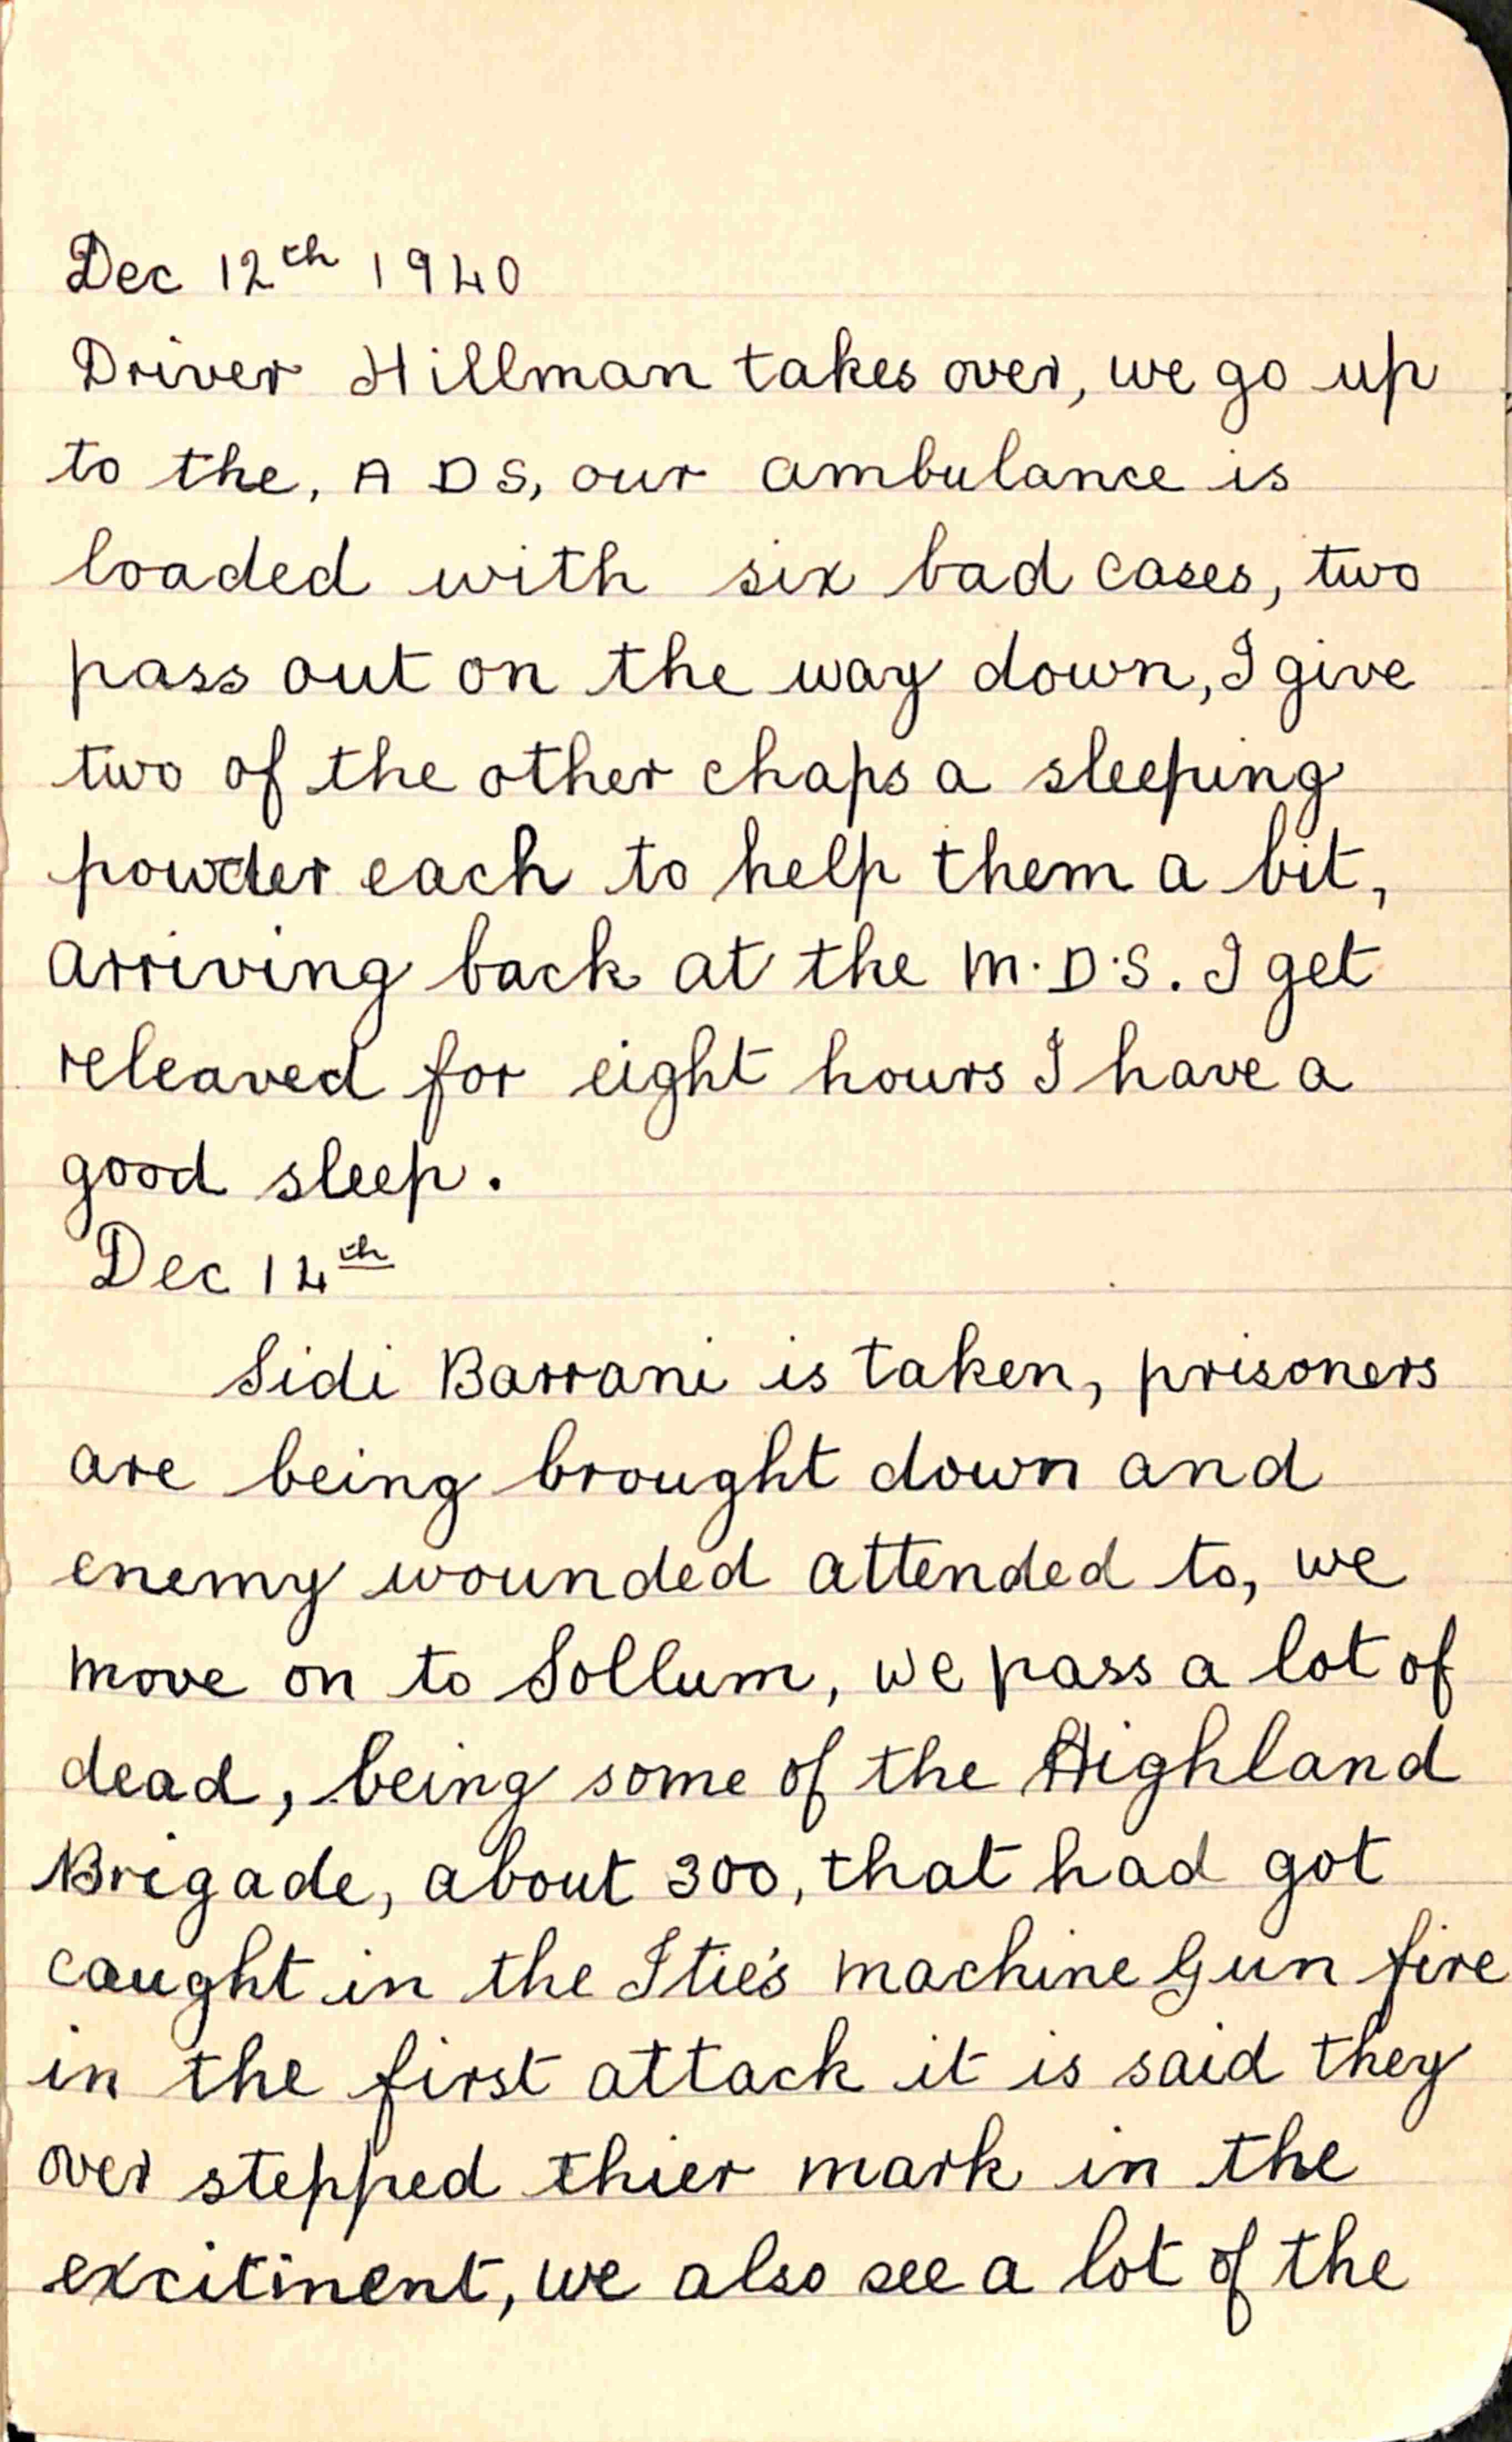 Dec 12th 1940
Driver Hillman takes over, we go up
to the, A D S, our ambulance is
loaded with six bad cases, two
pass out on the way down, I give
two of the other chaps a sleeping
powder each to help them a bit,
arriving back at the M.D.S. I get
releaved for eight hours I have a
good sleep.
Dec 14th
Sidi Barrani is taken, prisoners
are being brought down and
enemy wounded attended to, we
move on to Sollum, we pass a lot of
dead, being some of the Highland
Brigade, about 300, that had got
caught in the Itie's machine Gun fire
in the first attack it is said they
over stepped thier mark in the
excitinent, we also see a lot of the